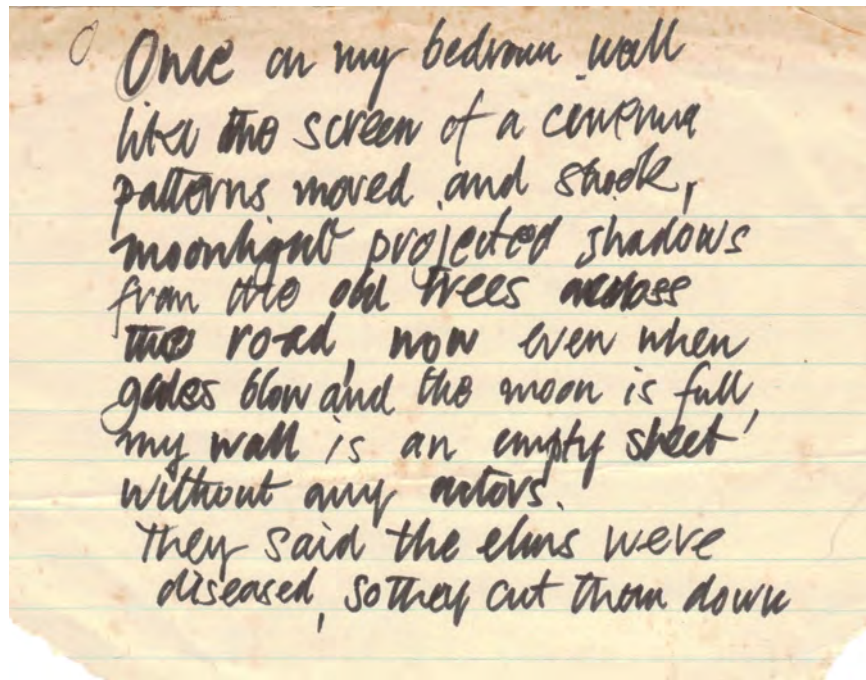 Once on my bedroom wall
like the screen of a cinema
patterns moved and shook,
moonlight projected shadows
from the old trees across
the road, now even when
gales blow and the moon is full,
my wall is an empty sheet
without any actors.
They said the elms were
diseased, so they cut them down